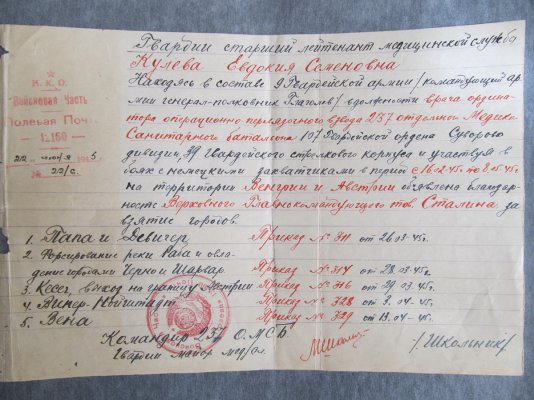 Гвардии старший лейтенант медицинской службы
Кулева Евдокия Семеновна
Находясь в составе 9 Гвардейской армии /командующий ар
мии генерал-полковник Глаголев/ в должности врача ордина
тора операционно перевязочного взвода 237 отдельного Медико
Санитарного батальона 107 Гвардейской ордена Суворова
дивизии, 39 Гвардейского стрелкового корпуса и участвуя в
боях с немецкими захватчиками в период с 16-12-45 по 8.05.45г.
на территории Венгрии и Австрии объявлена благодар
ность Верховного Главнокомандующего тов. Сталина за
взятие городов.
Н.К.О.
Войсковая Часть
Полевая Почта
22 июня 1945
№ 22/с.
1. Папа и Девичер Приказ № 311 от 26.03-45г.
2. Форсирование реки Раба и овла
дение городами Черной Шарвар. Приказ № 314 от 28.03-45г.
3. Кесег, выход на границу Австрии Приказ № 316 от 29.03-45г.
4. Винер-Нойштадт Приказ № 328 от 04-45г.
5. Вена Приказ № 329 от 13.04-45г.
Командир 237 О.М.С.Б.
Гвардии майор мед/сл.
/Школьник/